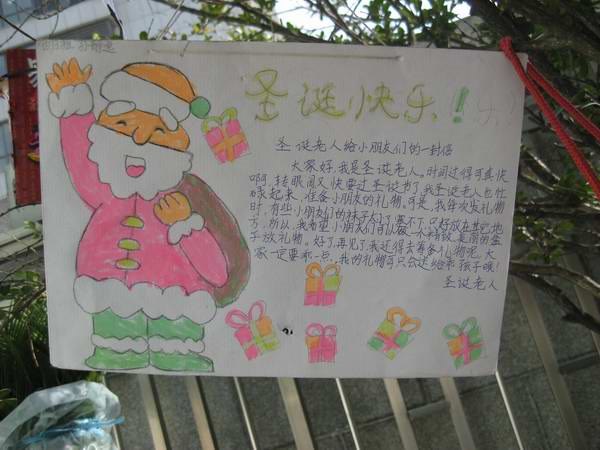 圣诞快乐!!乐!
圣诞老人给小朋友们的一封信
大家好,我是圣诞老人,时间过得可真快
啊,转眼间又快要过圣诞节了,我圣诞老人也忙
了起来,准备小朋友的礼物,可是,我每次发礼物
时,有些小朋友们的袜子太小塞不下,只好放在其它地
方,所以,我希望小朋友们可以做一个精致、美丽的盒
子放礼物,好了,再见了,我还得去准备礼物呢,大
家一定要乖一点,我的礼物可只会送给乖孩子哦!
圣诞老人